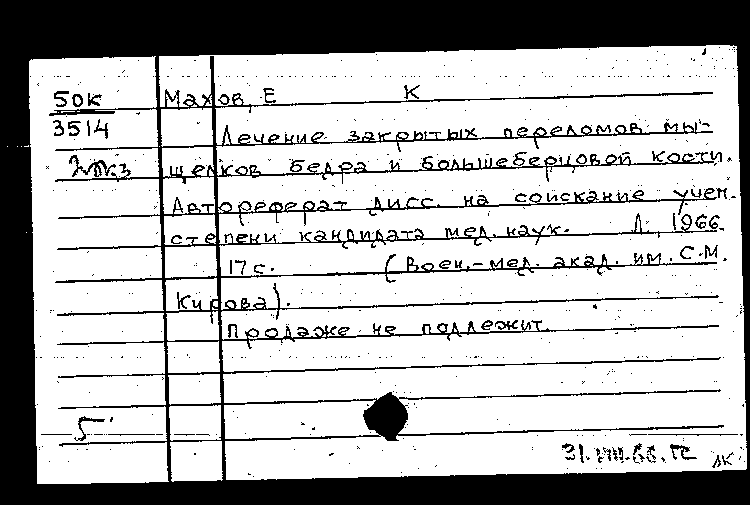 50к Махов, Е К
3514
Лечение закрытых переломов мы-
щелков бедра и большеберцовой кости.
Автореферат дисс. на соискание учен.
степени кандидата мед. наук. Л., 1966
17 с. (Воен.-мед. акад. им. С.М.
Кирова).
Продаже не подлежит.
5
31.VIII.66.